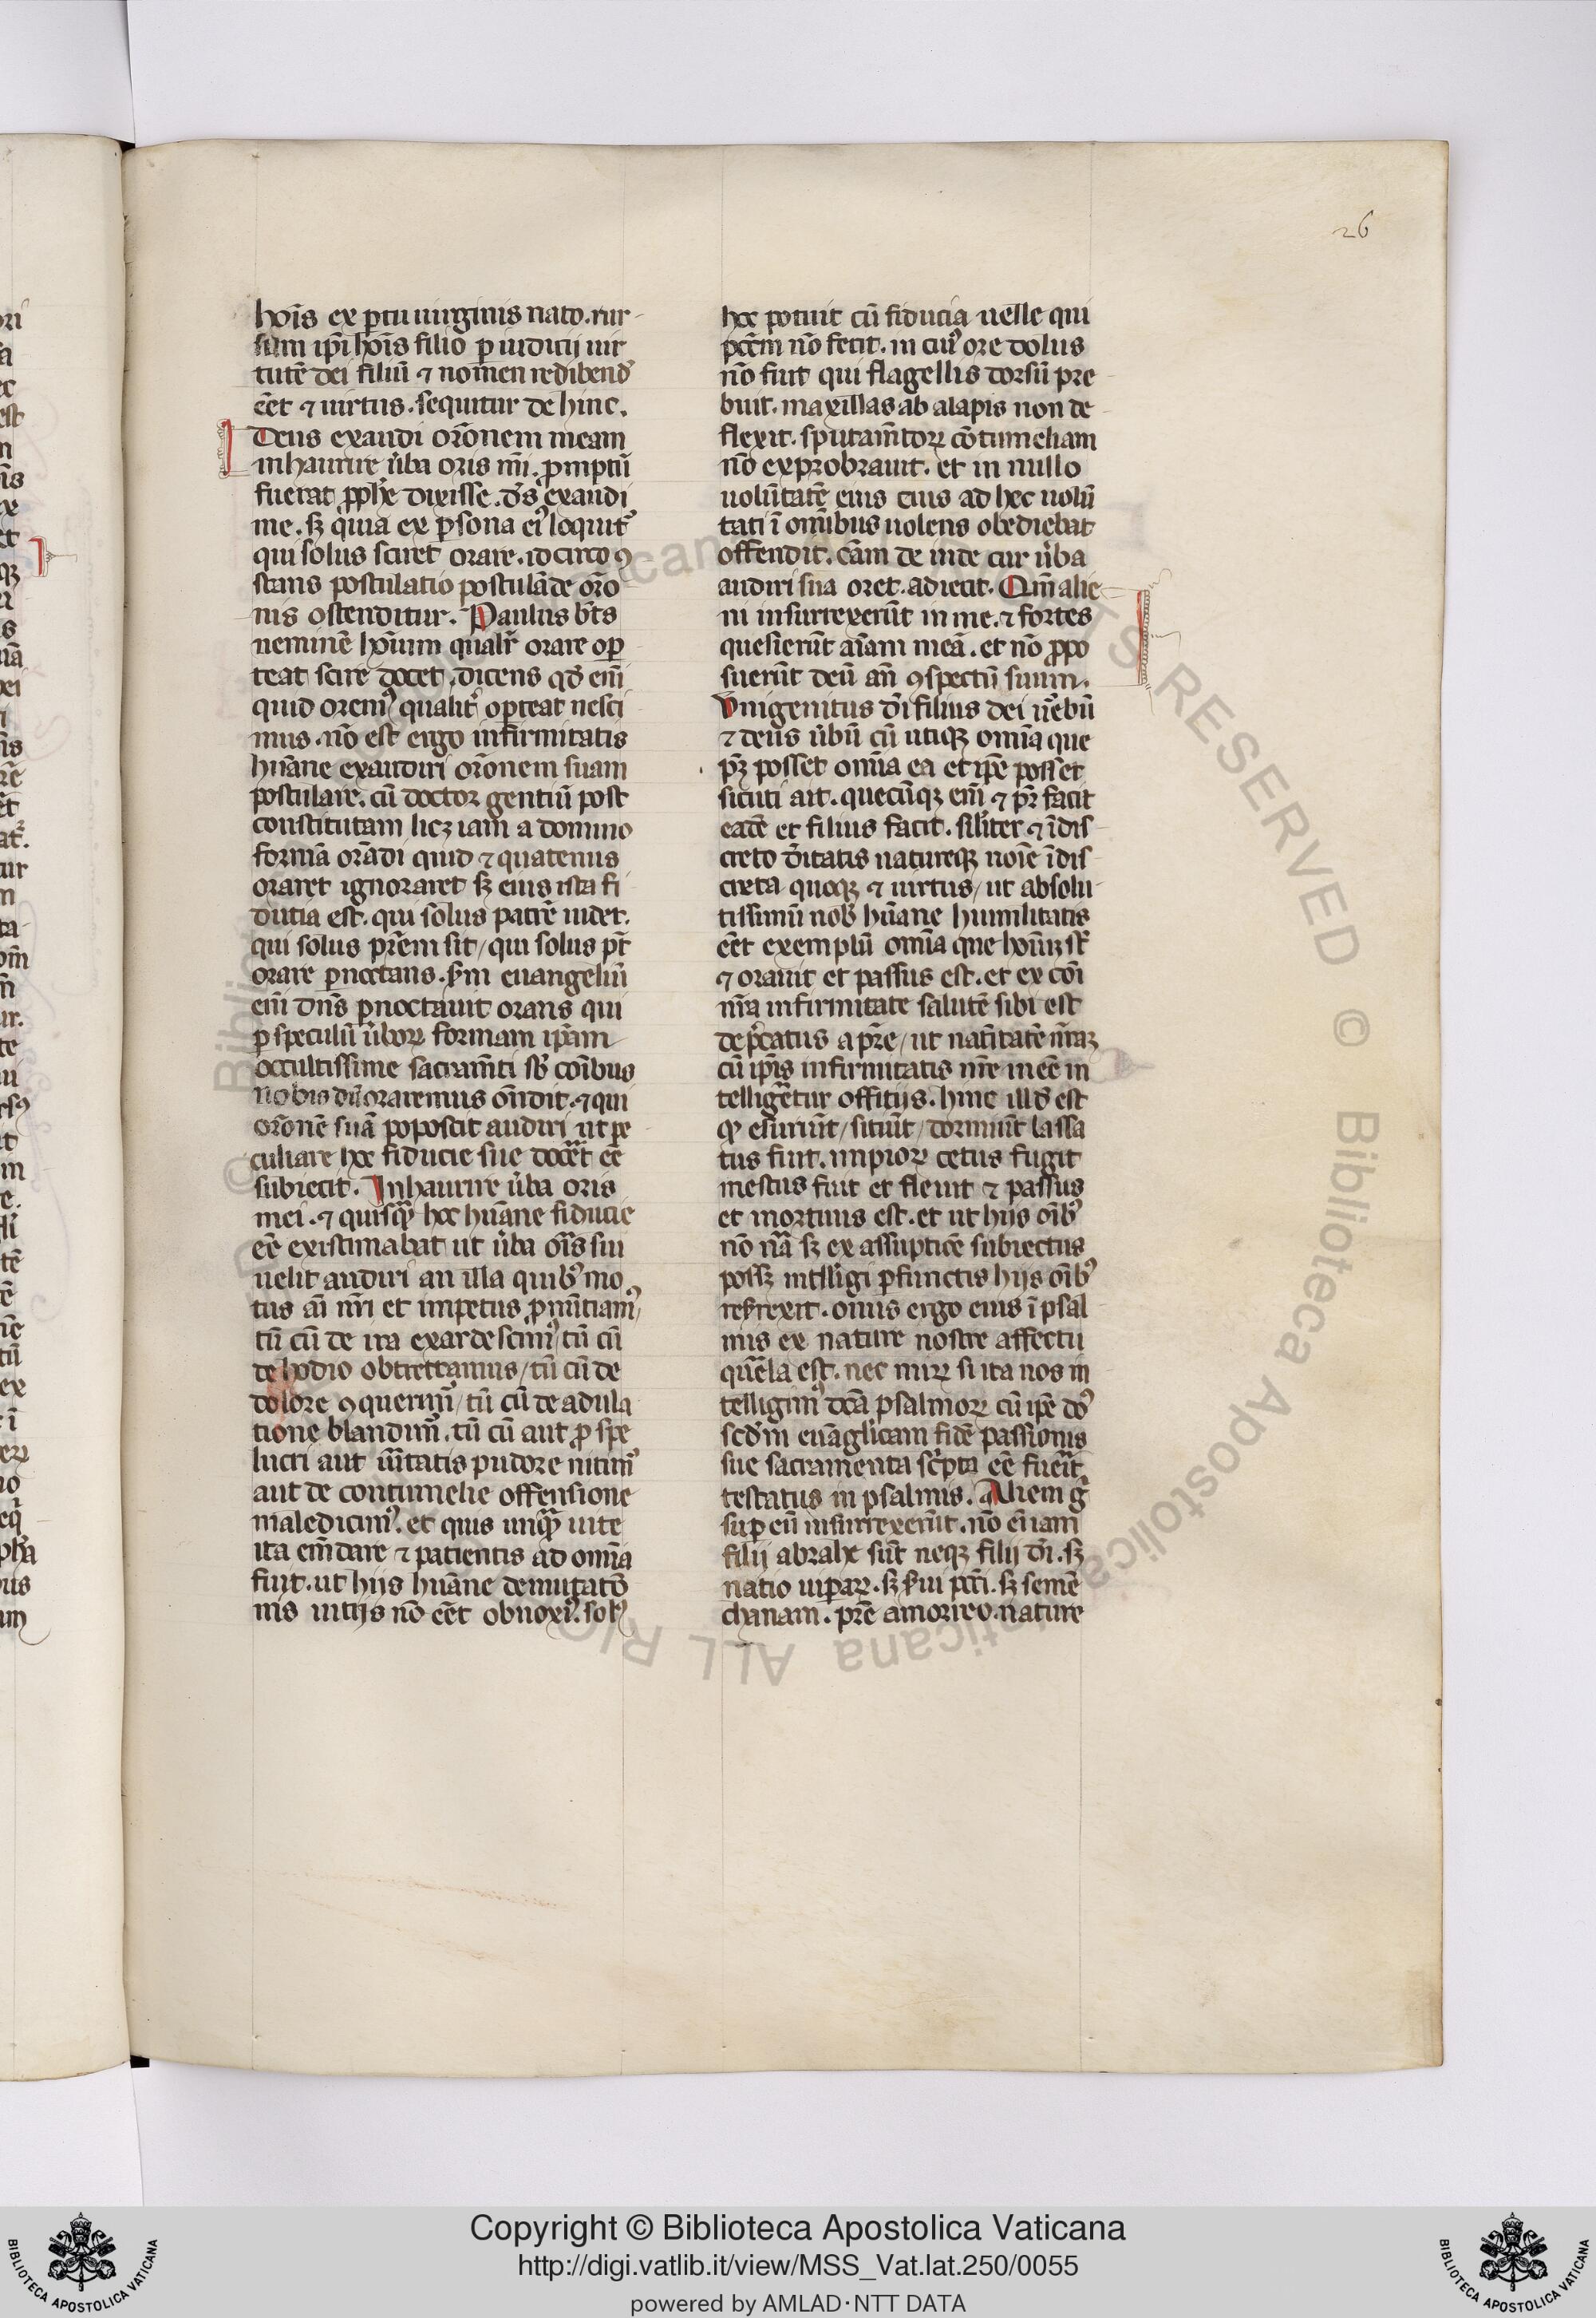 26
hoı̄s ex ꝑtu uirginis nato. rur-
sum ip̄i hoı̄s filio ꝑ iudicij uir
tutē dei filiū ⁊ nomen redibend᾿
eēt ⁊ uirtus. sequitur de hinc.
Deus exaudi or̄onem meam
inhaurire ūba oris mı̄. ꝓmptū
fuerat ꝓph̄e dixisse. d̄s exaudi
me. sꝫ quia ex ꝑsona ei᾿ loquit᾿
qui solus sciret orare. idcirco ꝯ
stans postulatio postulāde or̄o
nis ostenditur. Paulus b̄ts
neminē hoı̄um qualr̄ orare oꝑ
teat scire docet. dicens qd̄ enı̄
quid orem᾿ qualit᾿ oꝑteat nesci
mus. nō est ergo infirmitatis
hūane exaudiri or̄onem suam
postulare. cū doctor gentiū post
constitutam licꝫ iam a domino
formā orādi quid ⁊ quatenus
oraret ignoraret sꝫ eius ista fi
ducia est. qui solus patrē uidet.
qui solus pr̄em sit/ qui solus pr̄
orare ꝑnoctans. s̄m euangeliū
enı̄ dn̄s ꝑnoctauit orans qui
ꝑ speculū ūboꝝ formam ip̄am
occultissime sacram̄ti sb̄ coı̄bus
nobis dū oraremus on̄dit. ⁊ qui
or̄onē suā poposcit audiri ut pe
culiare hoc fiducie sue docēt eē
subiecit. Inhaurire ūba oris
mei. ⁊ quisq̄ hoc hūane fiducie
eē existimabat ut ūba or̄s sui
uelit audiri an illa quib᾿ mo
tus aı̄ nr̄i et impetus ꝓnūtiam᾿/
tū cū de ira exardescim᾿/ tū cū
de hodio obtrettamus/ tū cū de
dolore ꝯquerim᾿/ tū cū de adula
tione blandim᾿. tū cū aut ꝓ spe
lucri aut ūitatis pudore nitim᾿
aut de contumelie offensione
maledicim᾿. et quis unq̄ uite
ita em̄date ⁊ patientis ad omīa
fuit. ut hijs hūane demutatō
nis uitijs nō eēt obnoxi᾿. sol᾿
hoc potuit cū fiducia uelle qui
pcc̄m nō fecit. in cui᾿ ore dolus
nō fuit qui flagellis dorsū pre
buit. maxillas ab alapis non de
flexit. sputam̄toꝝ cōtumeliam
nō exprobrauit. et in nullo
uolūtatē eius cuius ad hec uolū
tati ī omībus uolens obediebat
offendit. cām de inde cur ūba
audiri sua oret. adiecit. Qm̄ alie
ni insurrexerūt in me. ⁊ fortes
quesierūt aı̄am meā. et nō ꝓpo
suerūt deū an̄ ꝯspectū suum.
Vnigenitus d̄i filius dei ūebū
⁊ deus ūbū cū utiqꝫ omīa que
pr̄ posset omīa ea et ip̄e posset
sicuti ait. quecūqꝫ enı̄ ⁊ pr̄ facit
eadē et filius facit. sil᾿iter ⁊ īdis
creto d̄itatis natureqꝫ noīe īdis
creta quoqꝫ ⁊ uirtus/ ut absolu
tissimū nob᾿ hūane humilitatis
eēt exemplū omīa que hoūꝫ st̄
⁊ orauit et passus est. et ex coı̄
nr̄a infirmitate salutē sibi est
dep̄catus a pr̄e/ ut natītatē nr̄aꝫ
cū ip̄is infirmitatis nr̄e ineē in
telligētur offitijs. hinc illd̄ est
qꝫ esuriūt/ sitiūt/ dormiūt lassa
tus fuit. impioꝝ cetus fugit
mestus fuit et fleuit ⁊ passus
et mortuus est. et ut hijs oı̄b᾿
nō nā sꝫ ex assuptiōe subiectus
possꝫ intlligi ꝑfunctis hijs oı̄b᾿
resrexit. omis ergo eius ī psal
mis ex nature nostre affectu
querela est. nec miꝝ si ita nos in
telligim᾿ dcā psalmoꝝ cū ip̄e do᾿
scd̄m euāglicam fidē passionis
sue sacramenta sc̄pta eē fuerit
testatus in psalmis. Alieni g᾿
suꝑ eū insurrexerūt. nō enı̄ iam
filij abrahe sūt neqꝫ filij d̄i. sꝫ
natio uiꝑaꝝ. sꝫ s̄ui pcc̄i. sꝫ semē
chanam. pr̄e amorreo. nature
Copyright © Biblioteca Apostolica Vaticana
http://digi.vatlib.it/view/MSS_Vat.lat.250/0055
powered by AMLAD·NTT DATA
BIBLIOTECA APOSTOLICA VATICANA
BIBLIOTECA APOSTOLICA VATICANA